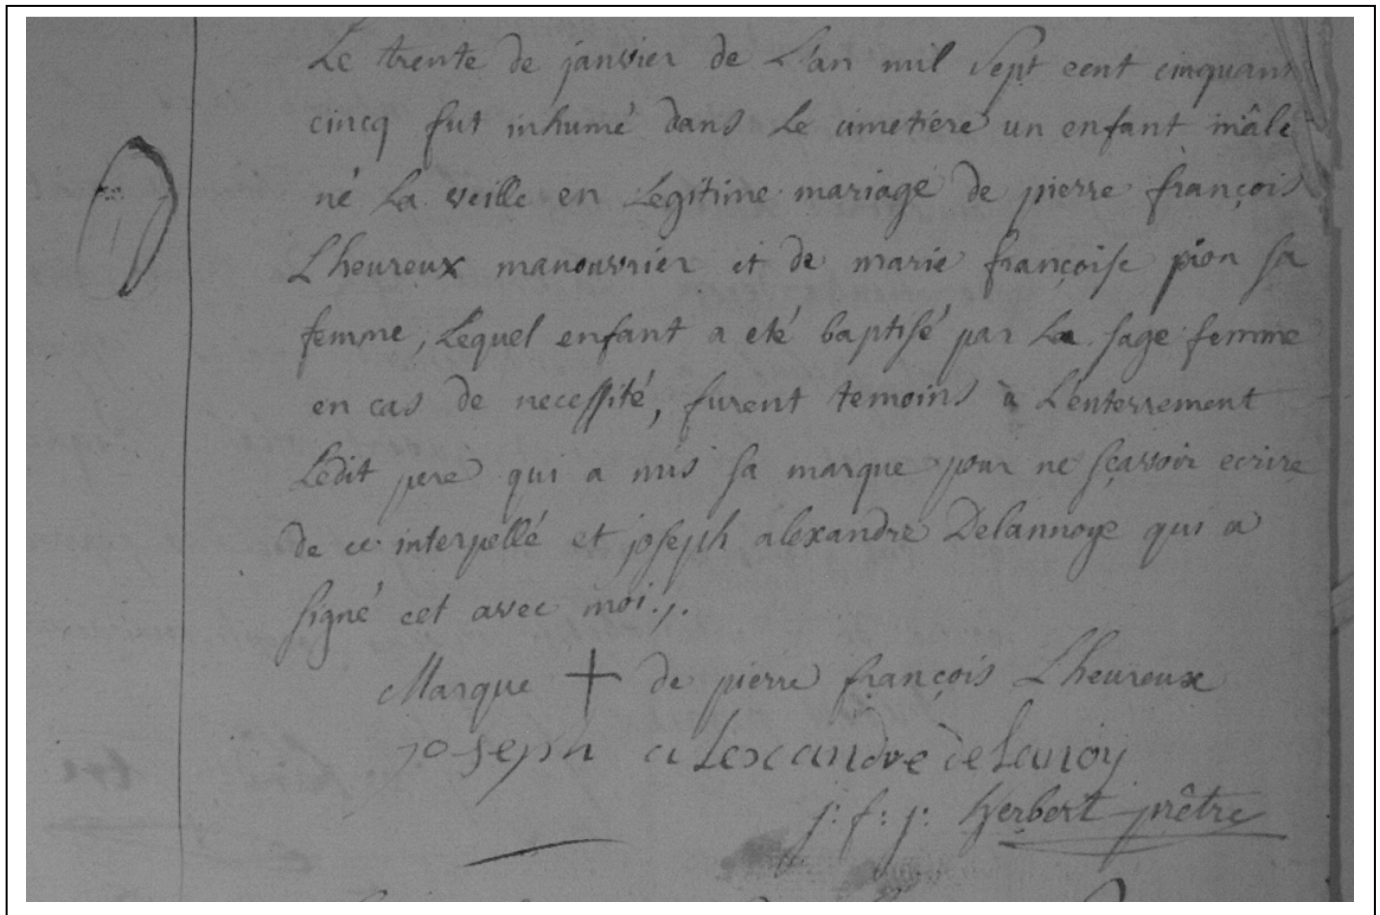 Le trente de janvier de L'an mil sept cent cinquant
cincq fut inhumé dans Le cimetiére un enfant mâle
né La veille en Legitime mariage de pierre françois
Lheureux manouvrier et de marie françoise pion sa
femme, Lequel enfant a eté baptisé par La sage femme
en cas de necessité, furent temoins à Lenterrement
Ledit pere qui a mis sa marque pour ne sçavoir ecrire
de ce interpellé et joseph alexandre Delannoye qui a
signé cet avec moi./.
Marque + de pierre françois Lheureux
joseph alexandre delanoy
j: f: j: herbert prêtre